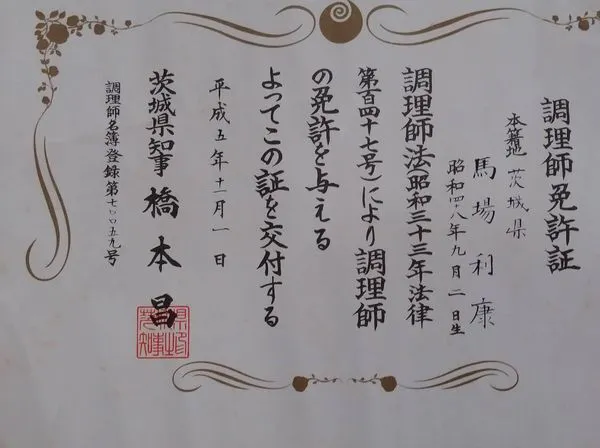 調理師免許証
本籍地 茨城県
馬場利康
昭和四八年九月二日生
調理師法(昭和三十三年法律
第百四十七号)により調理師
の免許を与える
よってこの証を交付する
平成五年十一月一日
茨城県知事 橋本昌
調理師名簿登録第七〇〇五九号
茨城県知事